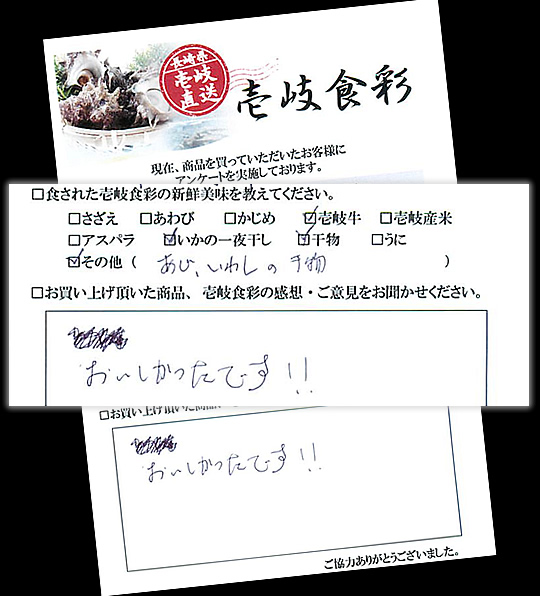 長崎県
壱岐
直送
壱岐食彩
現在、商品を買っていただいたお客様に
アンケートを実施しております。
□食された壱岐食彩の新鮮美味を教えてください。
□さざえ □あわび □かじめ ☑壱岐牛 □壱岐産米
□アスパラ ☑いかの一夜干し ☑干物 □うに
☑その他( あじ、いわしの干物 )
□お買い上げ頂いた商品、壱岐食彩の感想・ご意見をお聞かせください。
おいしかったです!!
□お買い上げ頂いた商品
おいしかったです!!
ご協力ありがとうございました。